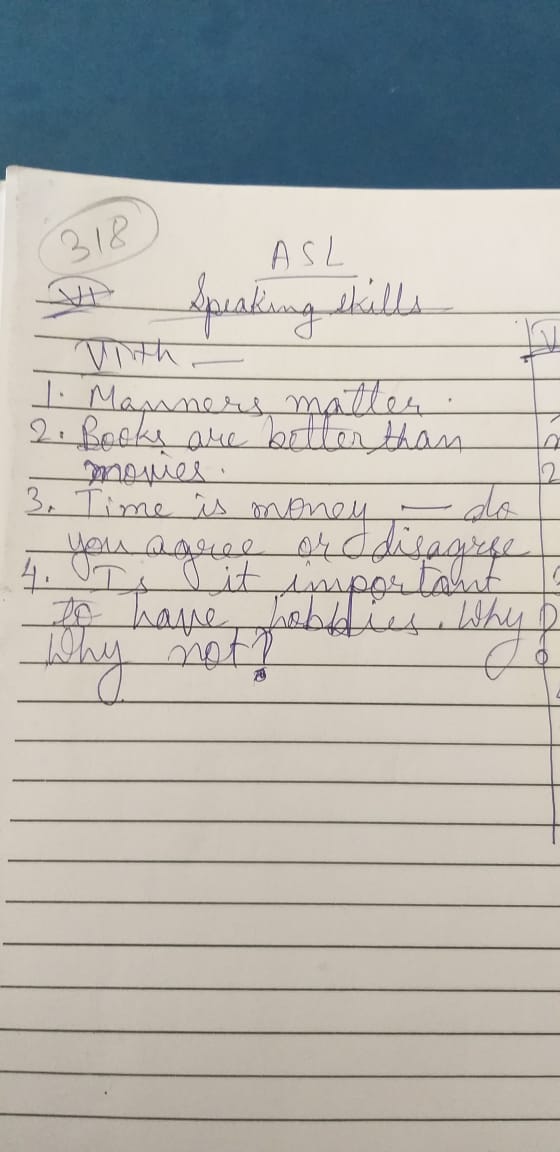 318
ASL
VI Speaking skills
VIth —
1. Manners matter.
2. Books are better than
movies.
3. Time is money — do
you agree or disagree
4. Is it important
to have hobbies. Why?
Why not?